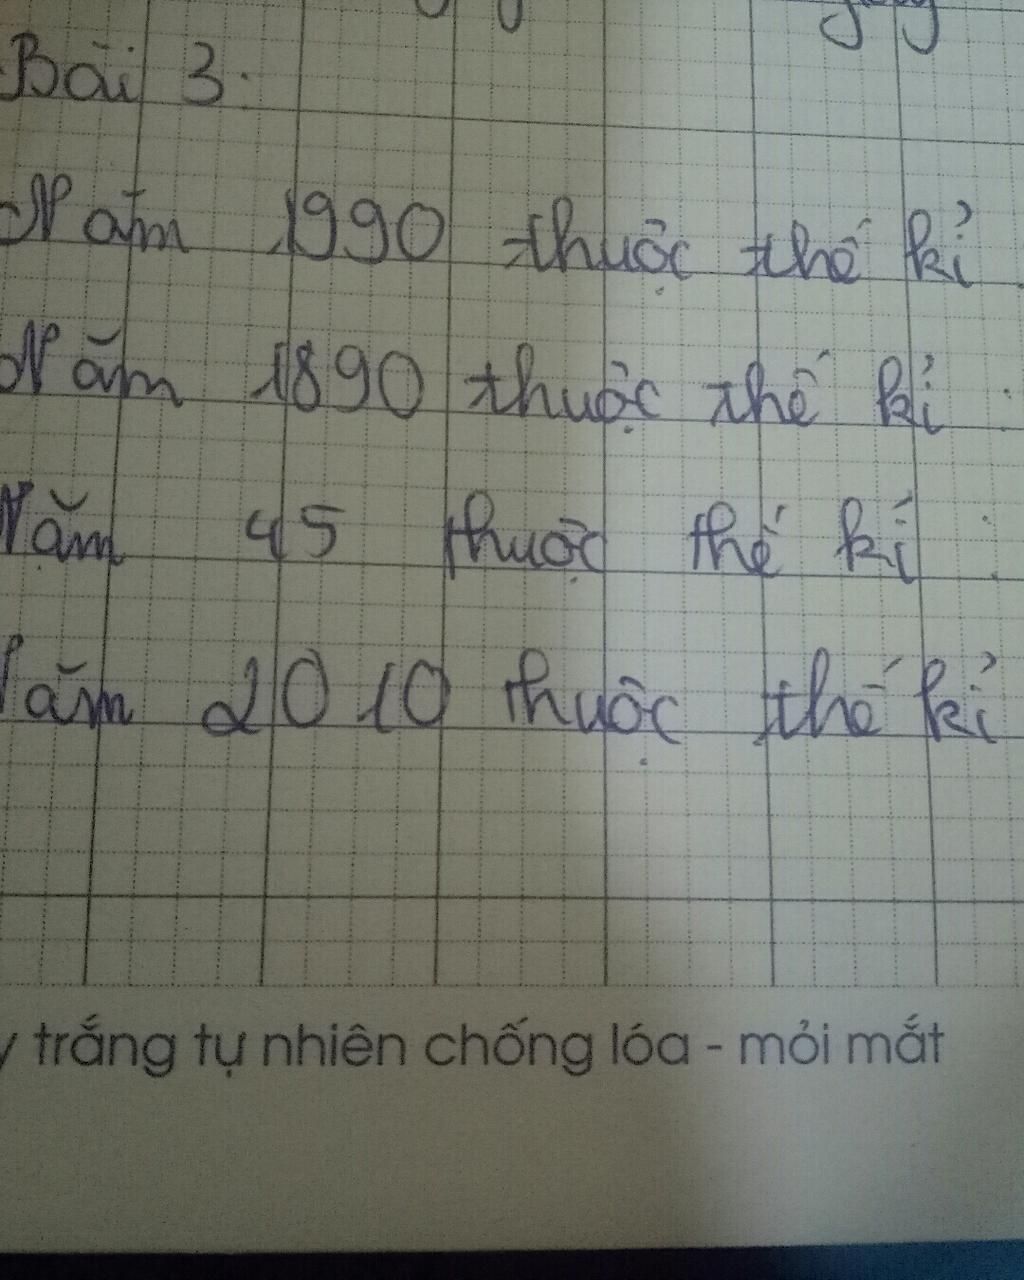 Bài 3.
Năm 1990 thuộc thế kỉ
Năm 1890 thuộc thế kỉ :
Năm 45 thuộc thế kỉ :
Năm 2010 thuộc thế kỉ
trắng tự nhiên chống lóa - mỏi mắt